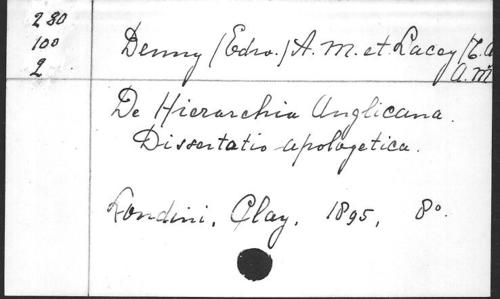 230
100
2
Denny (Edw.) A. M. et Lacey (T. A.
A.M
De Hierarchia Anglicana.
Dissertatio apologetica.
Londini, Clay, 1895, 8º.